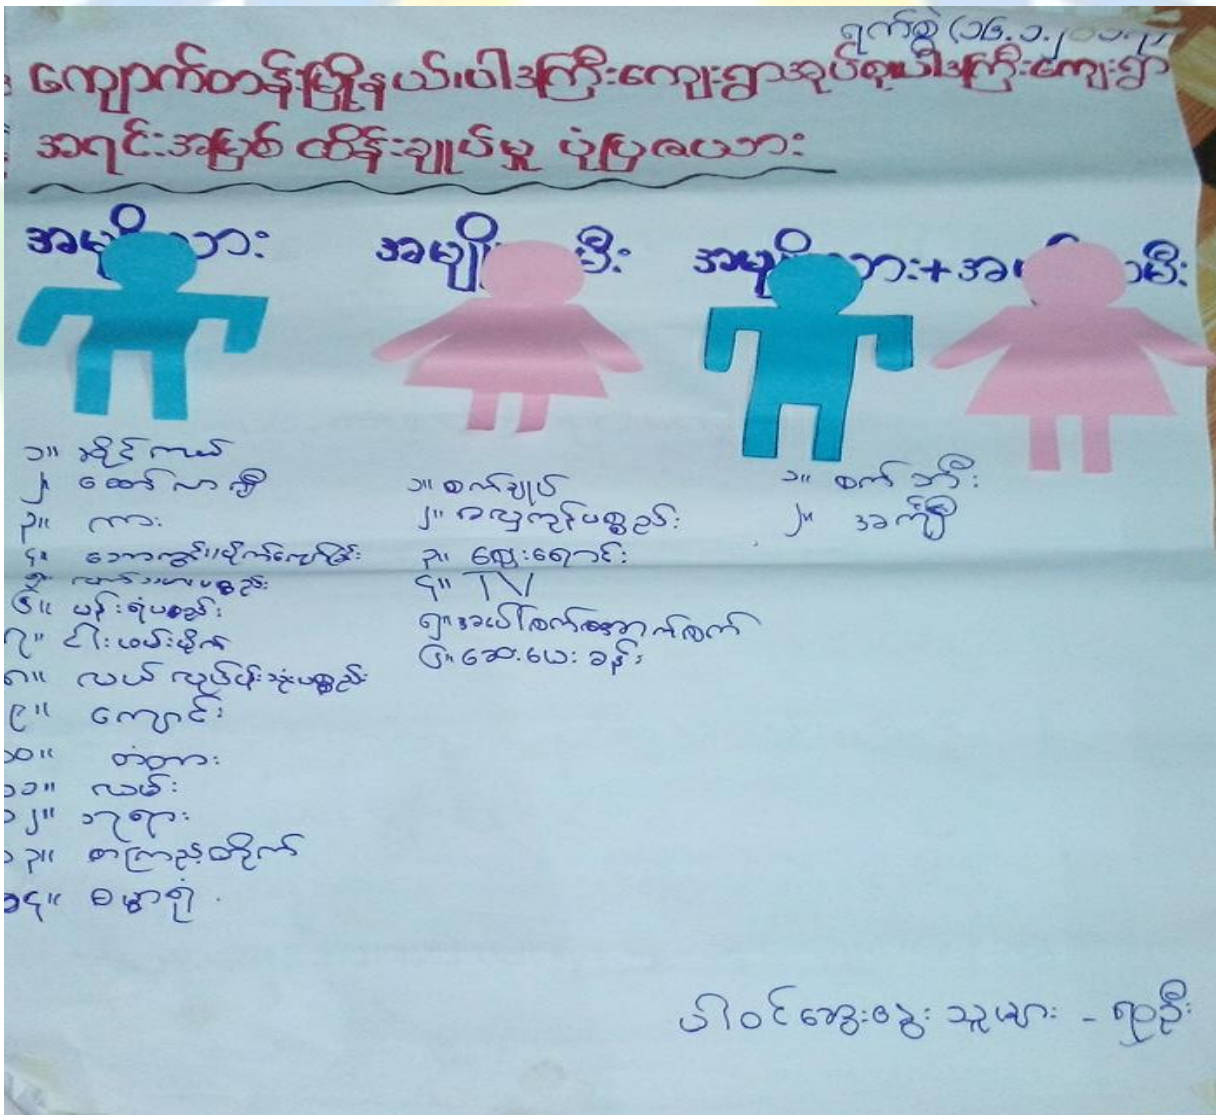 ရက်စွဲ (၁၆.၁.၂၀၁၇)
ကျောက်တန်းမြို့နယ်၊ပါဒကြီးကျေးရွာအုပ်စု၊ပါဒကြီးကျေးရွာ
အရင်းအမြစ် ထိန်းချုပ်မှု ပုံပြဇယား
အမျိုးသား
အမျိုးသမီး
အမျိုးသား+အမျိုးသမီး
၁။ ဆိုင်ကယ်
၂။ ထော်လာဂျီ
၃။ ကား
၄။
၅။ ပစ္စည်း
၆။ ပန်းရံပစ္စည်း
၇။ ငါးဖမ်းပိုက်
၈။ လယ်လုပ်ငန်းသုံးပစ္စည်း
၉။ ကျောင်း
၁၀။ တံတား
၁၁။ လမ်း
၁၂။ ဘုရား
၁၃။ စာကြည့်တိုက်
၁၄။ ဓမ္မာရုံ
၁။ စက်ချုပ်
၂။ အလှကုန်ပစ္စည်း
၃။ ဈေးရောင်း
၄။ TV
၅။ အပေါ်စက်အောက်စက်
၆။ ဆေးပေးခန်း
၁။ စက်ဘီး
၂။ အင်္ကျီ
ပါဝင်ဆွေးနွေးသူများ - ၅၃ဦး